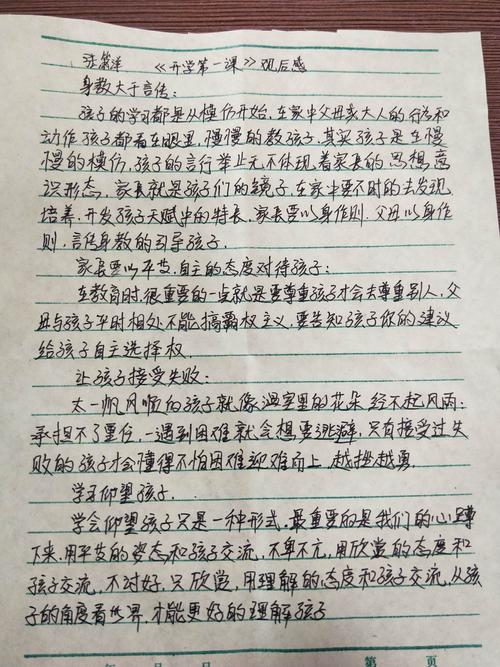 张 洋 《开学第一课》观后感
身教大于言传:
孩子的学习都是从模仿开始,在家中父母亲大人的行为和
动作孩子都看在眼里,慢慢的教孩子,其实孩子是在慢
慢的模仿,孩子的言行举止无不体现着家长的思想,意
识形态,家长就是孩子们的镜子,在家中要不时的去发现,
培养,开发孩子天赋中的特长,家长要以身作则,父母以身作
则,言传身教的引导孩子.
家长要以平等,自主的态度对待孩子:
在教育时,很重要的一点就是要尊重孩子才会去尊重别人,父
母与孩子平时相处不能搞霸权主义,要告知孩子你的建议
给孩子自主选择权.
让孩子接受失败:
太一帆风顺的孩子就像温室里的花朵经不起风雨;
承担不了重任,一遇到困难就会想要逃避,只有接受过失
败的孩子才会懂得不怕困难迎难而上,越挫越勇.
学习仰望孩子.
学会仰望孩子只是一种形式,最重要的是我们的心蹲
下来,用平等的姿态和孩子交流,不卑不亢,用欣赏的态度和
孩子交流,不讨好,只欣赏,用理解的态度和孩子交流,从孩
子的角度看世界,才能更好的理解孩子
年 月 日 第 页